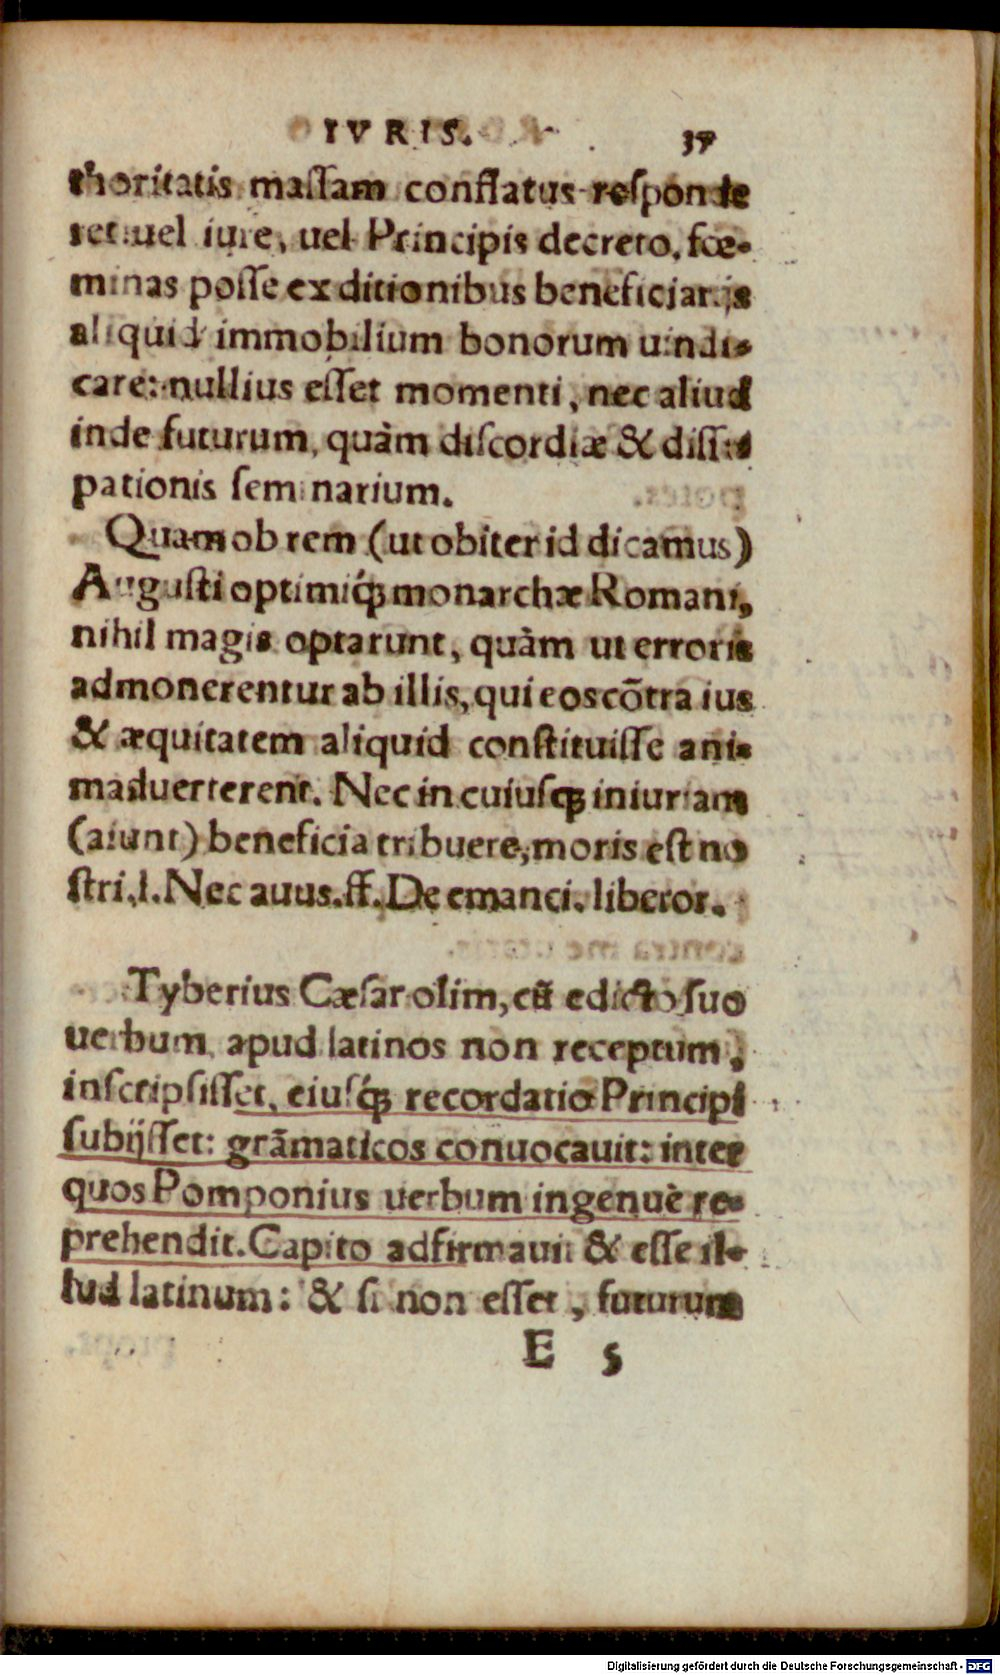 IVRIS. 37
thoritatis massam conflatus responde
ret: uel iure, uel Principis decreto, fœ-
minas posse ex ditionibus beneficiarijs
aliquid immobilium bonorum uindi-
care: nullius esset momenti, nec aliud
inde futurum, quàm discordiæ & dissi-
pationis seminarium.
Quamobrem (ut obiter id dicamus)
Augusti optimiq́ꝫ monarchæ Romani,
nihil magis optarunt, quàm ut erroris
admonerentur ab illis, qui eos cõtra ius
& æquitatem aliquid constituisse ani-
maduerterent. Nec in cuiusqꝫ iniuriam
(aiunt) beneficia tribuere, moris est no
stri, l. Nec auus. ff. De emanci. liberor.
Tyberius Cæsar olim, cũ edicto suo
uerbum apud latinos non receptum,
inscripsisset, eiusq́ꝫ recordatio Principi
subijsset: grãmaticos conuocauit: inter
quos Pomponius uerbum ingenuè re-
prehendit. Capito adfirmauit & esse il-
lud latinum: & si non esset, futurum
E 5
Digitalisierung gefördert durch die Deutsche Forschungsgemeinschaft - DFG